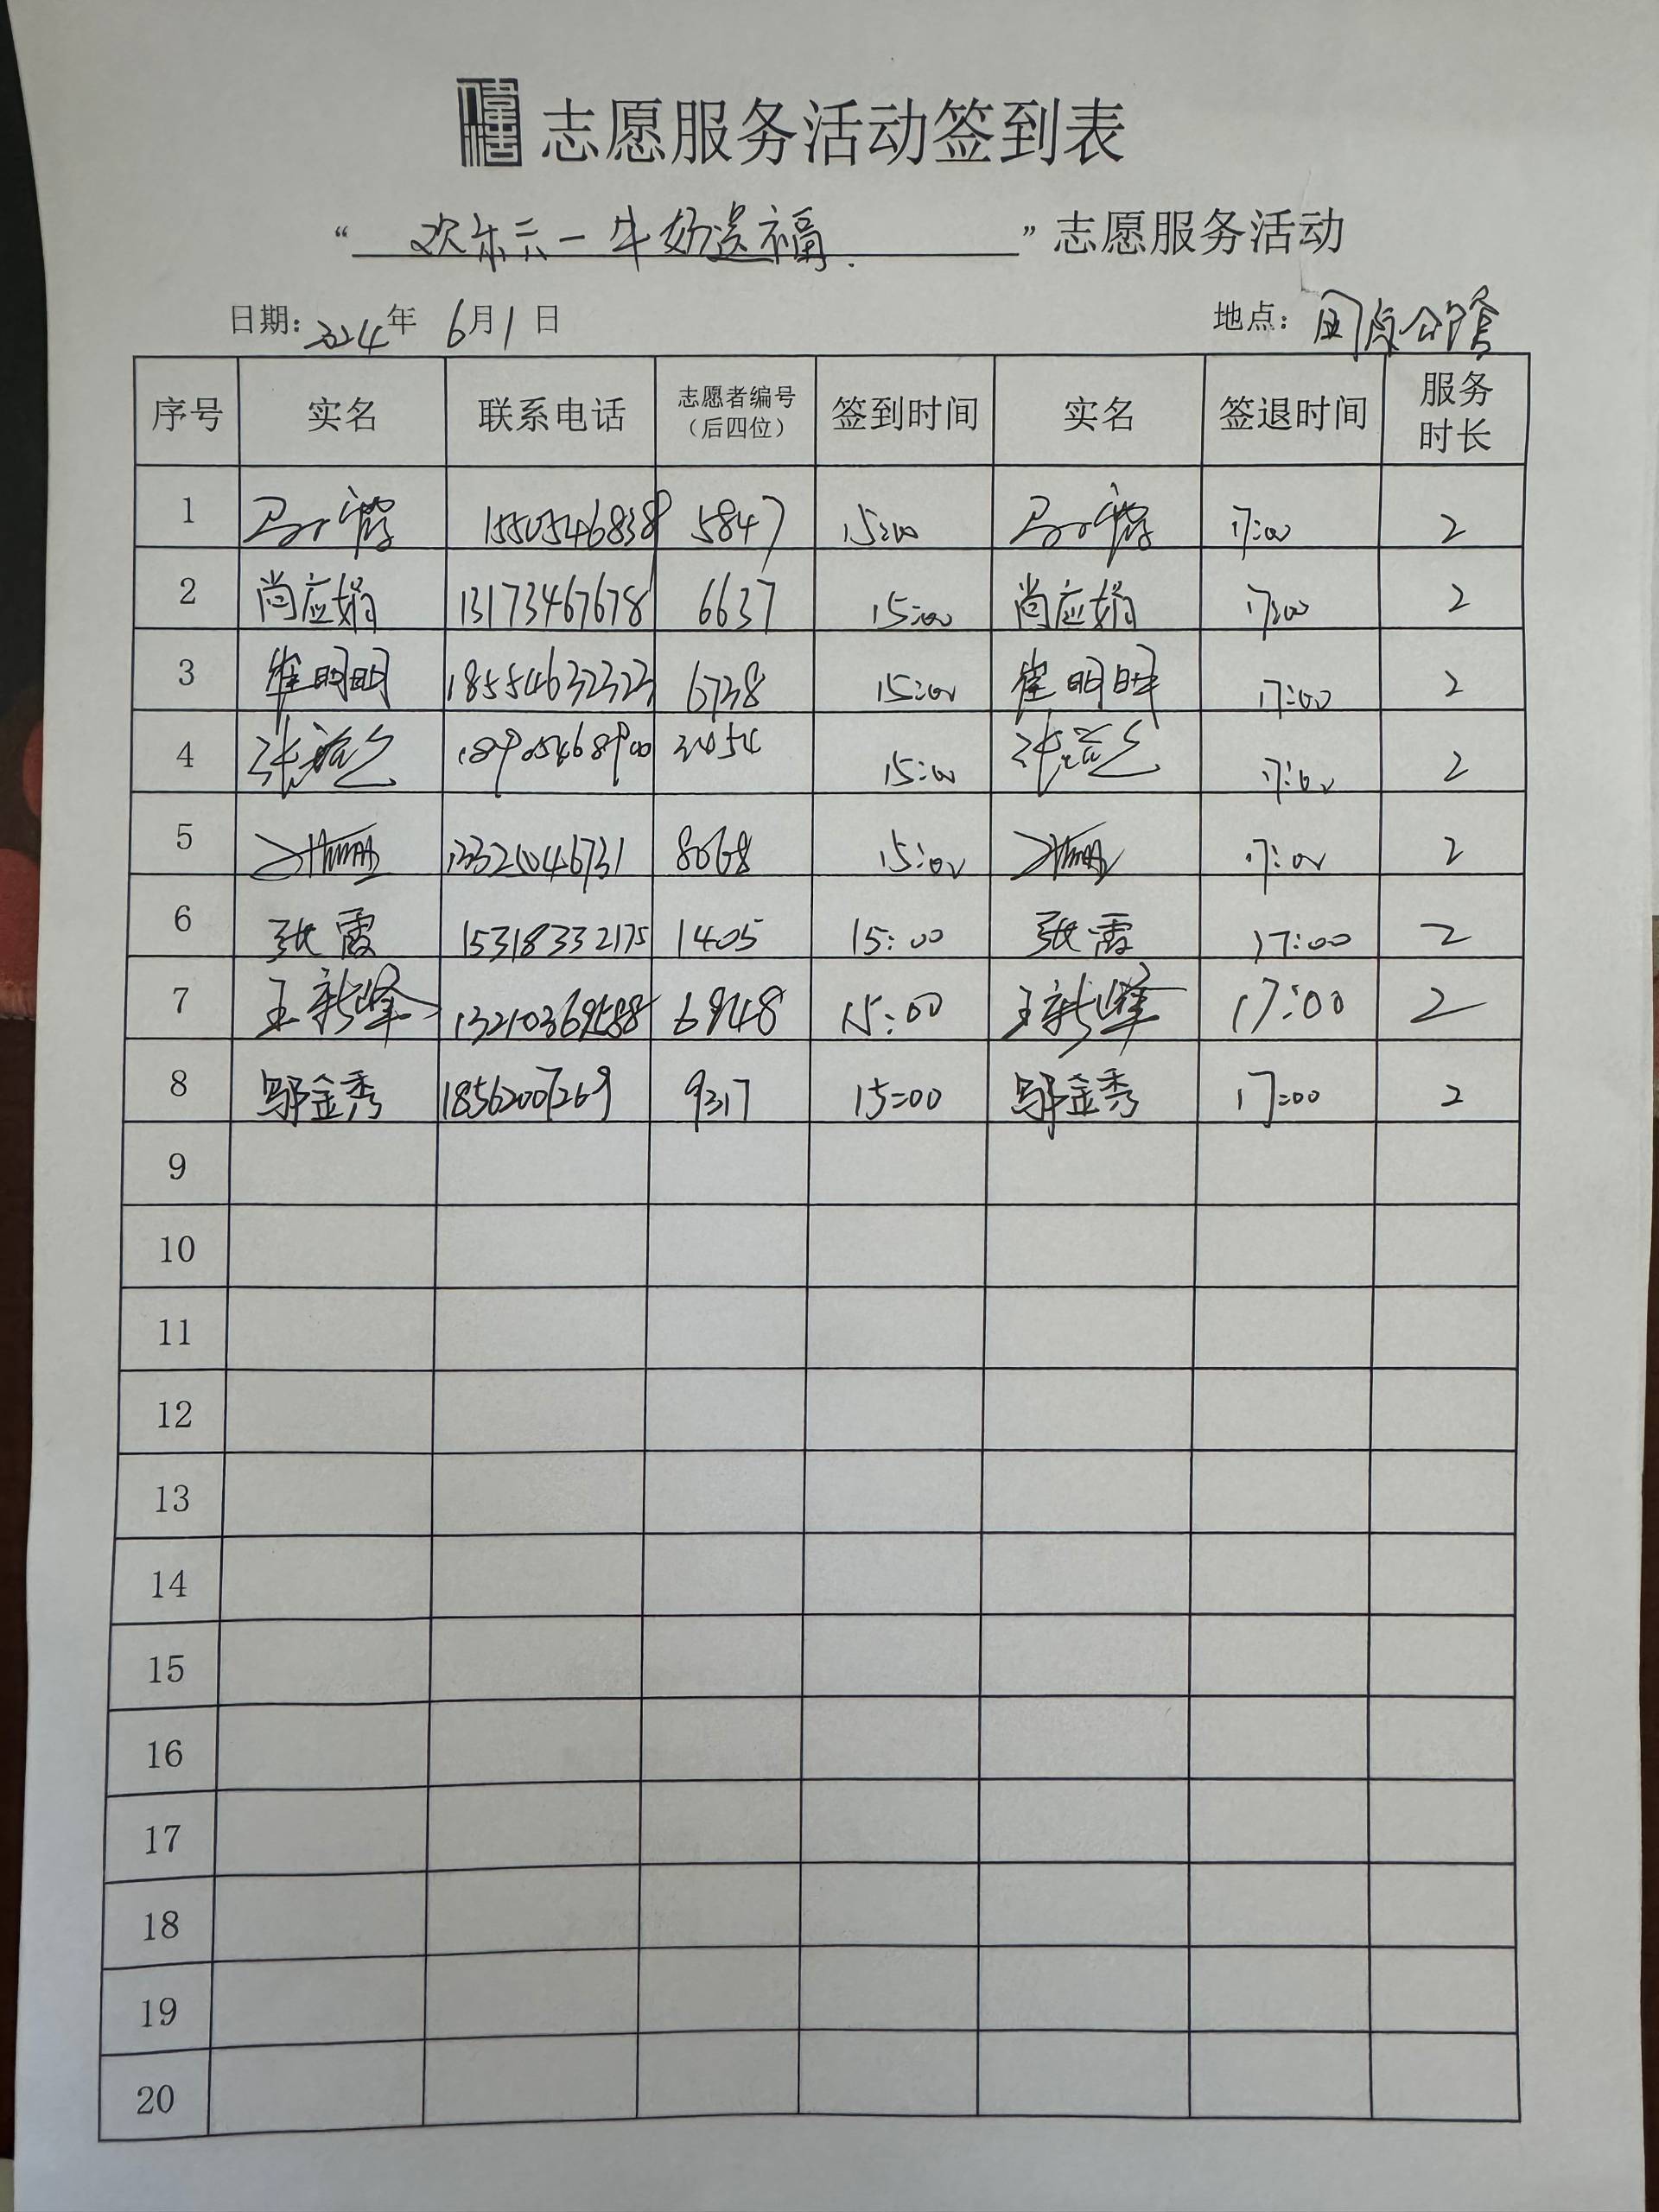 志愿服务活动签到表
“欢乐六一牛奶送福”志愿服务活动
日期:2024年 6月1日 地点:
序号 实名 联系电话 志愿者编号(后四位) 签到时间 实名 签退时间 服务时长
1 15505468389 5847 15:00 17:00 2
2 尚应娟 13173467678 6637 15:00 尚应娟 17:00 2
3 崔明明 18554632323 6738 15:00 崔明明 17:00 2
4 18905468900 3454 15:00 17:00 2
5 13321046731 8068 15:00 17:00 2
6 张霞 15318332175 1405 15:00 张霞 17:00 2
7 王新峰 6948 15:00 王新峰 17:00 2
8 邬金秀 18562007269 9317 15:00 邬金秀 17:00 2
9
10
11
12
13
14
15
16
17
18
19
20